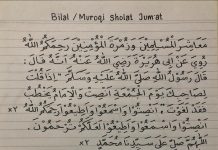 Bilal / Muroqi Sholat Jum'at
مَعَاشِرَ الْمُسْلِمِيْنَ وَزُمْرَةَ الْمُؤْمِنِيْنَ رَحِمَكُمُ اللهُ
رُوِيَ عَنْ أَبِي هُرَيْرَةَ رَضِيَ اللهُ عَنْهُ أَنَّهُ قَالَ :
قَالَ رَسُوْلُ اللهِ صَلَّى اللهُ عَلَيْهِ وَسَلَّمَ : إِذَا قُلْتَ
لِصَاحِبِكَ يَوْمَ الْجُمُعَةِ أَنْصِتْ وَالْإِمَامُ يَخْطُبُ
فَقَدْ لَغَوْتَ أَنْصِتُوْا وَاسْمَعُوْا وَأَطِيْعُوْا رَحِمَكُمُ اللهُ ×٢
أَنْصِتُوْا وَاسْمَعُوْا وَأَطِيْعُوْا لَعَلَّكُمْ تُرْحَمُوْنَ .
اَللّٰهُمَّ صَلِّ عَلَى سَيِّدِنَا مُحَمَّدٍ ×٢